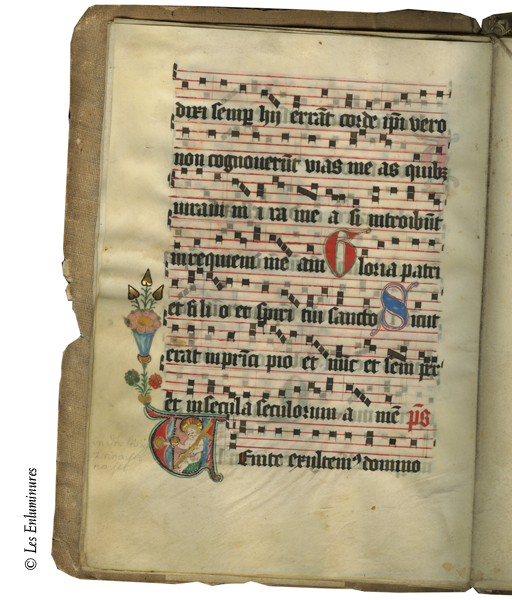 dixi semp hij errãt corde ipi vero
non cognoverũt vias me as quibꝫ
iuravi in i ra me a si introibũt
in requiem me am Gloria patri
et fili o et spiri tui sancto Sicut
erat in prĩci pio et nũc et sem per
et in secula seculorum a mẽ p̃s
Venite exultemꝰ domino
© Les Enluminures